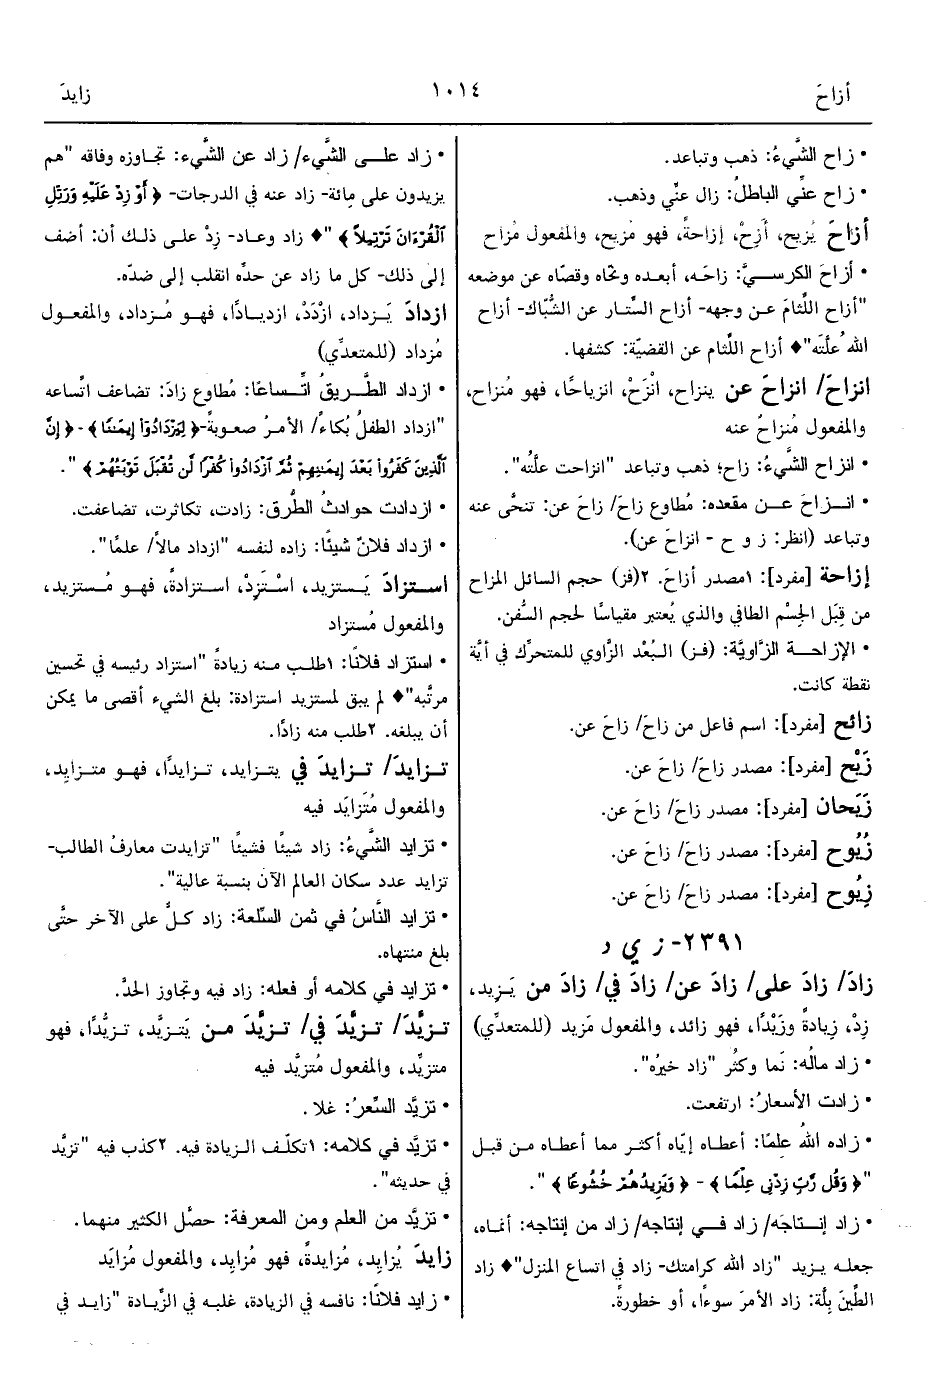 أزاحَ
١٠١٤
زايدَ
• زاح الشَّيءُ: ذهب وتباعد.
• زاح عنِّي الباطلُ: زال عنِّي وذهب.
أزاحَ يُزيح، أَزِحْ، إزاحةً، فهو مُزيح، والمفعول مُزاح
• أزاحَ الكرسيَّ: زاحَه، أبعده ونحّاه وقصّاه عن موضعه
"أزاح اللِّثامَ عن وجهه- أزاح السِّتار عن الشُّبّاك- أزاح
اللهُ علَّتَه"♦ أزاح اللِّثام عن القضيّة: كشفها.
انزاحَ/ انزاحَ عن ينزاح، انْزَحْ، انزياحًا، فهو مُنزاح،
والمفعول مُنزاحٌ عنه
• انزاح الشَّيءُ: زاح؛ ذهب وتباعد "انزاحت علَّتُه".
• انـزاحَ عـن مقعده: مُطاوع زاحَ/ زاحَ عن: تنحَّى عنه
وتباعد (انظر: ز و ح - انزاحَ عن).
إزاحة [مفرد]: ١مصدر أزاحَ. ٢(فز) حجم السائل المزاح
من قِبَل الجِسْم الطافي والذي يُعتبر مقياسًا لحجم السُّفن.
• الإزاحـة الزّاويَّة: (فـز) البُعْد الزَّاوي للمتحرِّك في أيَّة
نقطة كانت.
زائح [مفرد]: اسم فاعل من زاحَ/ زاحَ عن.
زَيْح [مفرد]: مصدر زاحَ/ زاحَ عن.
زَيَحان [مفرد]: مصدر زاحَ/ زاحَ عن.
زُيُوح [مفرد]: مصدر زاحَ/ زاحَ عن.
زِيُوح [مفرد]: مصدر زاحَ/ زاحَ عن.
٢٣٩١- ز ي د
زادَ/ زادَ على/ زادَ عن/ زادَ في/ زادَ من يَـزيد،
زِدْ، زِيادةً وزَيْدًا، فهو زائد، والمفعول مَزيد (للمتعدِّي)
• زاد مالُه: نَما وكثُر "زاد خيرُه".
• زادت الأسعارُ: ارتفعت.
• زاده اللهُ علمًا: أعطاه إيّاه أكثـر مما أعطاه مـن قبل
"﴿ وَقُل رَّبِّ زِدْنِي عِلْمًا ﴾ - ﴿ وَيَزِيدُهُمْ خُشُوعًا ﴾ ".
• زاد إنـتاجَه/ زاد فـي إنتاجه/ زاد من إنتاجه: أنماه،
جعله يـزيد "زاد الله كرامتك- زاد في اتساع المنزل"♦ زاد
الطِّينَ بِلَّة: زاد الأمرَ سوءًا، أو خطورةً.
• زاد علـى الشَّيء/ زاد عن الشَّيء: تجـاوزه وفاقه "هم
يزيدون على مائة- زاد عنه في الدرجات- ﴿ أَوْ زِدْ عَلَيْهِ وَرَتِّلِ
الْقُرْءَانَ تَرْتِيلاً ﴾ "♦ زاد وعـاد- زِدْ علـى ذلـك أن: أضف
إلى ذلك- كل ما زاد عن حدِّه انقلب إلى ضدّه.
ازدادَ يَـزداد، ازْدَدْ، ازديـادًا، فهـو مُـزداد، والمفعـول
مُزداد (للمتعدِّي)
• ازداد الطَّـريقُ اتِّـساعًا: مُطاوع زادَ: تضاعف اتِّساعه
"ازداد الطفلُ بُكاءً/ الأمـرُ صعوبةً-﴿ لِيَزْدَادُوا إِيمَـٰنًا ﴾-﴿ إِنَّ
الَّذِينَ كَفَرُوا بَعْدَ إِيمَـٰنِهِمْ ثُمَّ ازْدَادُوا كُفْرًا لَن تُقْبَلَ تَوْبَتُهُمْ ﴾ ".
• ازدادت حوادثُ الطُّرق: زادت، تكاثرت، تضاعفت.
• ازداد فلانٌ شيئًا: زاده لنفسه "ازداد مالاً/ علمًا".
استـزادَ يَـستزيد، اسْتَزِدْ، استـزادةً، فهـو مُـستزيد،
والمفعول مُستزاد
• استزاد فلانًا: ١طلب منه زيادةً "استزاد رئيسه في تحسين
مرتَّبه"♦ لم يبق لمستزيد استزادة: بلغ الشيء أقصى ما يمكن
أن يبلغه. ٢طلب منه زادًا.
تـزايدَ/ تـزايدَ في يتـزايد، تـزايدًا، فهـو متـزايِد،
والمفعول مُتَزايَد فيه
• تزايد الشَّيءُ: زاد شيئًا فشيئًا "تزايدت معارفُ الطالب-
تزايد عدد سكان العالم الآن بنسبة عالية".
• تزايد النَّاسُ في ثمن السِّلعة: زاد كـلٌّ على الآخر حتَّى
بلغ منتهاه.
• تزايد في كلامه أو فعله: زاد فيه وتجاوز الحدَّ.
تـزيَّدَ/ تـزيَّدَ في/ تـزيَّدَ مـن يَتزيَّد، تـزيُّدًا، فهو
متزيِّد، والمفعول مُتزيَّد فيه
• تزيَّد السِّعرُ: غلا.
• تزيَّد في كلامه: ١تكلَّف الـزيادة فيه. ٢كذب فيه "تزيَّد
في حديثه".
• تزيَّد من العلم ومن المعرفة: حصَّل الكثير منهما.
زايدَ يُزايِد، مُزايدةً، فهو مُزايِد، والمفعول مُزايَد
• زايد فلانًا: نافسه في الزيادة، غلبه في الزِّيادة "زايـد في